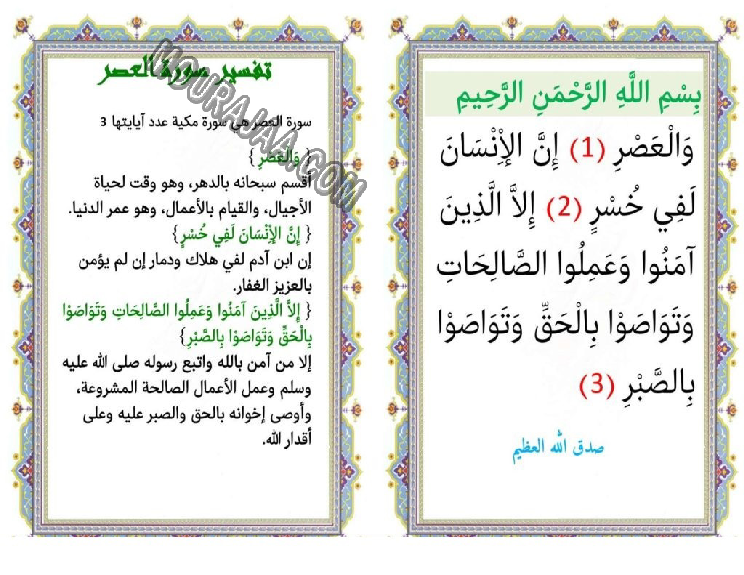 بِسْمِ اللَّهِ الرَّحْمَنِ الرَّحِيمِ
وَالْعَصْرِ (1) إِنَّ الْإِنْسَانَ
لَفِي خُسْرٍ (2) إِلاَّ الَّذِينَ
آمَنُوا وَعَمِلُوا الصَّالِحَاتِ
وَتَوَاصَوْا بِالْحَقِّ وَتَوَاصَوْا
بِالصَّبْرِ (3)
صدق الله العظيم
تفسير سورة العصر
سورة العصر هي سورة مكية عدد آياتها 3
{ وَالْعَصْرِ }
أقسم سبحانه بالدهر، وهو وقت لحياة
الأجيال، والقيام بالأعمال، وهو عمر الدنيا.
{ إِنَّ الْإِنْسَانَ لَفِي خُسْرٍ}
إن ابن آدم لفي هلاك ودمار إن لم يؤمن
بالعزيز الغفار.
{ إِلاَّ الَّذِينَ آمَنُوا وَعَمِلُوا الصَّالِحَاتِ وَتَوَاصَوْا
بِالْحَقِّ وَتَوَاصَوْا بِالصَّبْرِ}
إلا من آمن بالله واتبع رسوله صلى الله عليه
وسلم وعمل الأعمال الصالحة المشروعة،
وأوصى إخوانه بالحق والصبر عليه وعلى
أقدار الله.
MOURAJAA.COM